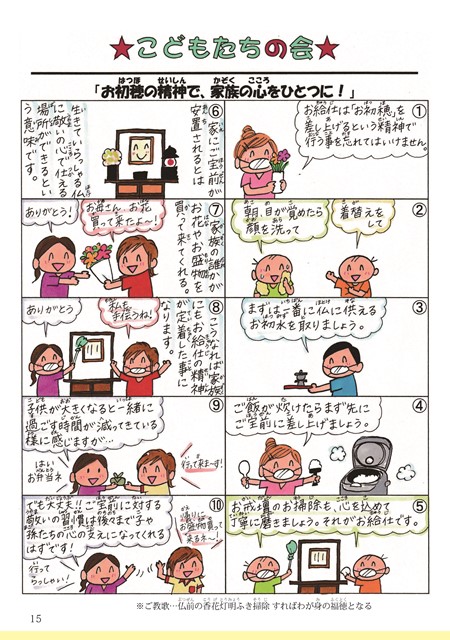 ★こどもたちの会★
「お初穂の精神で、家族の心をひとつに！」
①
お給仕は「お初穂」を
差し上げるという精神で
行う事を忘れてはいけません。
②
朝、目が覚めたら
顔を洗って
着替えを
して
③
まずは一番に仏に供える
お初水を取りましょう。
④
ご飯が炊けたらまず先に
ご宝前に差し上げましょう。
⑤
お戒壇のお掃除も、心を込めて
丁寧に磨きましょう。それがお給仕です。
⑥
家に宝前が
安置されるとは
生きていらっしゃる仏
に敬いの心で仕える
場所ができるとい
う意味です。
⑦
家族の誰かが
お花やお盛物を
買って来てくれる。
お母さん、お花
買って来たよ〜！
ありがとう！
⑧
こうなれば家族
にもお給仕の精神
が定着した事に
なります。
私も
手伝うね！
ありがとう
⑨
子供が大きくなると一緒に
過ごす時間が減ってきている
様に感じますが…
はい
お弁当ネ
行って来まーす！
⑩
でも大丈夫！！ご宝前に対する
敬いの習慣は後々まで子や
孫たちの心の支えになってくれる
はずです！
帰りに
お盛物買って
来るネ〜！
行って
らっしゃい！
※ご教歌…仏前の香花灯明ふき掃除 すればわが身の福徳となる
15